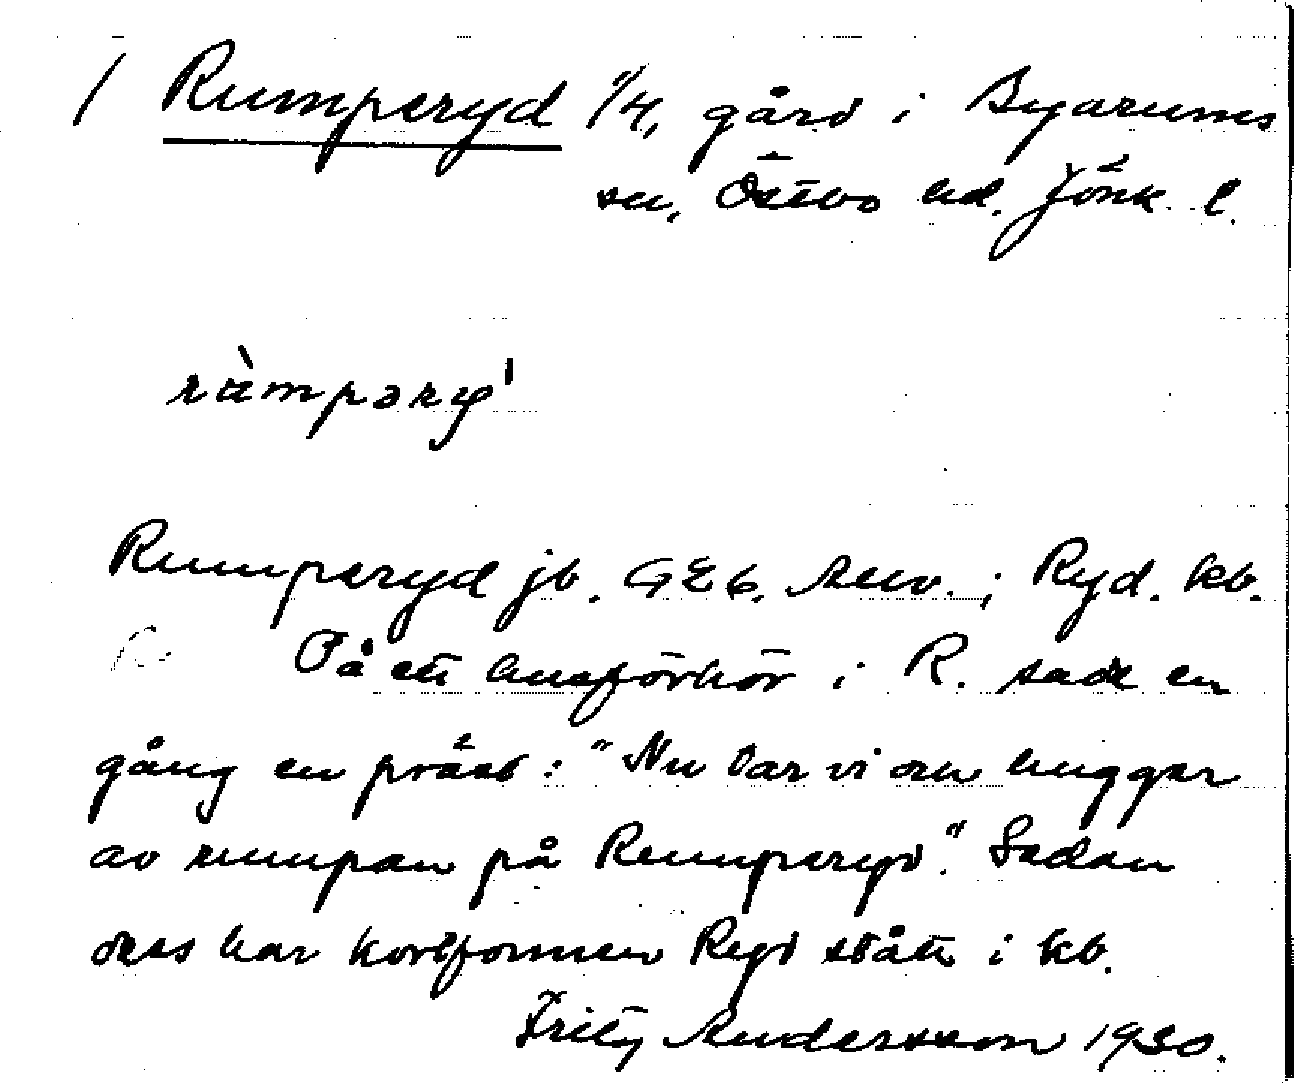 / Rumperyd 1/4, gård i Byarums
sn, Östbo hd. Jönk. l.
rùmpəry'
Rumperyd jb. GEb. Allm.; Ryd. kb.
På ett husförhör i R. sade en
gång en präst: "Nu tar vi och hugger
av rumpan på Rumperyd." Sedan
dess har kortformen Ryd stått i kb.
Fritz Andersson 1930.